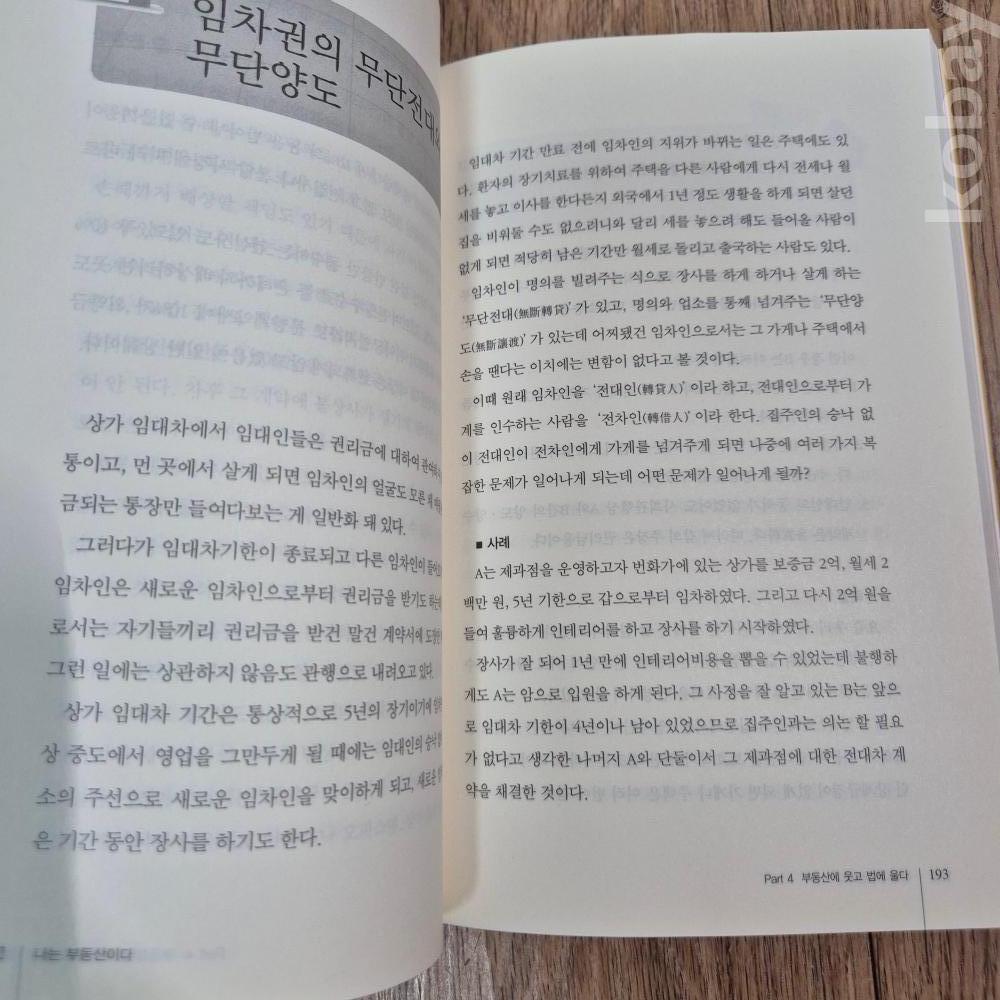 임차권의 무단전대와
무단양도
상가 임대차에서 임대인들은 권리금에 대하여
통이고, 먼 곳에서 살게 되면 임차인의 얼굴도 모른 채
금되는 통장만 들여다보는 게 일반화 돼 있다.
그러다가 임대차기한이 종료되고 다른 임차인이
임차인은 새로운 임차인으로부터 권리금을 받기도
로서는 자기들끼리 권리금을 받건 말건 계약서에
그런 일에는 상관하지 않음도 관행으로 내려오고 있다.
상가 임대차 기간은 통상적으로 5년의 장기이기에
상 중도에서 영업을 그만두게 될 때에는 임대인의 승낙
소의 주선으로 새로운 임차인을 맞이하게 되고, 새로운
은 기간 동안 장사를 하기도 한다.
나는 부동산이다
임대차 기간 만료 전에 임차인의 지위가 바뀌는 일은 주택에도 있
다. 환자의 장기치료를 위하여 주택을 다른 사람에게 다시 전세나 월
세를 놓고 이사를 한다든지 외국에서 1년 정도 생활을 하게 되면 살던
집을 비워둘 수도 없으려니와 달리 세를 놓으려 해도 들어올 사람이
없게 되면 적당히 남은 기간만 월세로 돌리고 출국하는 사람도 있다.
임차인이 명의를 빌려주는 식으로 장사를 하게 하거나 살게 하는
‘무단전대(無斷轉貸)’가 있고, 명의와 업소를 통째 넘겨주는 ‘무단양
도(無斷讓渡)’가 있는데 어찌됐건 임차인으로서는 그 가게나 주택에서
손을 땐다는 이치에는 변함이 없다고 볼 것이다.
이때 원래 임차인을 ‘전대인(轉貸人)’이라 하고, 전대인으로부터 가
게를 인수하는 사람을 ‘전차인(轉借人)’이라 한다. 집주인의 승낙 없
이 전대인이 전차인에게 가게를 넘겨주게 되면 나중에 여러 가지 복
잡한 문제가 일어나게 되는데 어떤 문제가 일어나게 될까?
■ 사례
A는 제과점을 운영하고자 번화가에 있는 상가를 보증금 2억, 월세 2
백만 원, 5년 기한으로 갑으로부터 임차하였다. 그리고 다시 2억 원을
들여 훌륭하게 인테리어를 하고 장사를 하기 시작하였다.
장사가 잘 되어 1년 만에 인테리어비용을 뽑을 수 있었는데 불행하
게도 A는 암으로 입원을 하게 된다. 그 사정을 잘 알고 있는 B는 앞으
로 임대차 기한이 4년이나 남아 있었으므로 집주인과는 의논 할 필요
가 없다고 생각한 나머지 A와 단둘이서 그 제과점에 대한 전대차 계
약을 채결한 것이다.
Part 4 부동산에 웃고 법에 울다 193
kobay